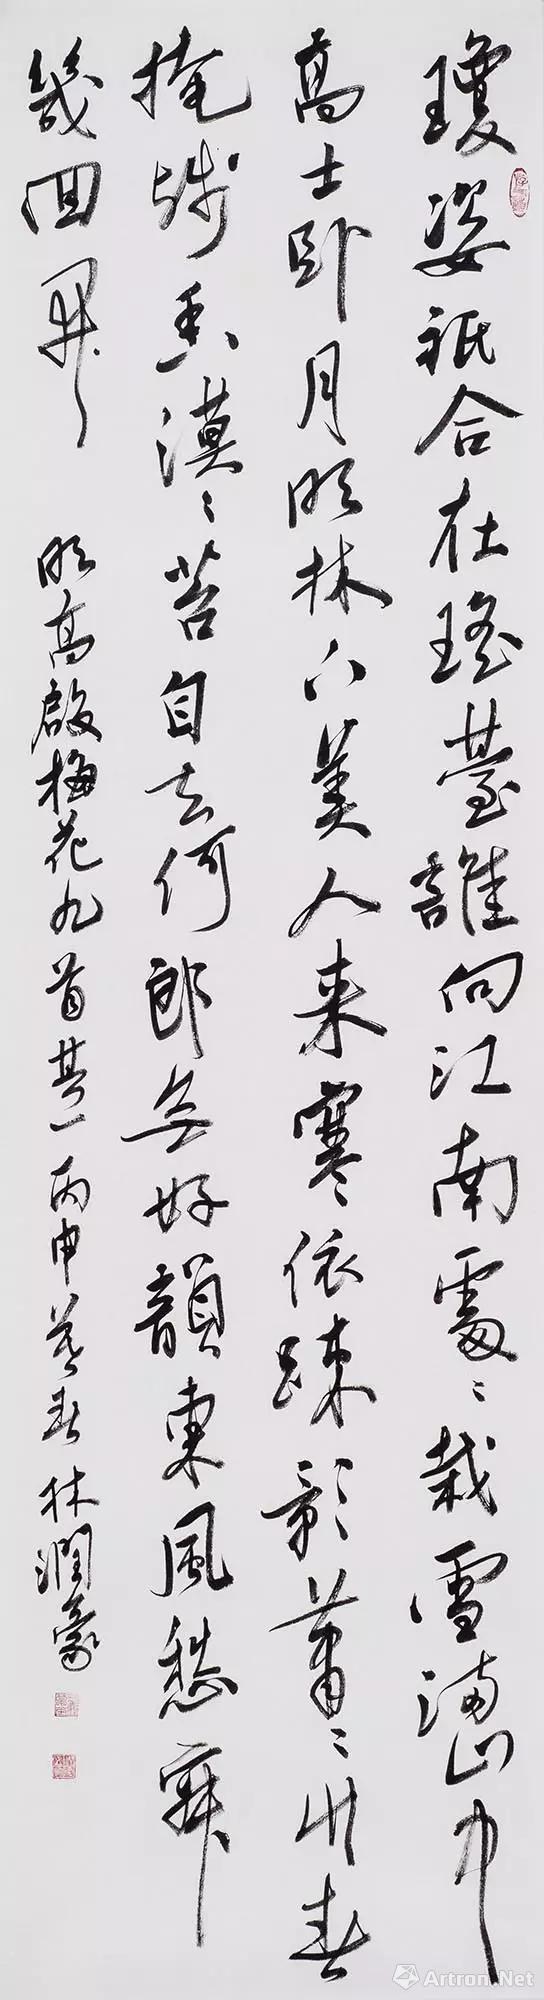 瓊姿祇合在瑤臺誰向江南處〻栽雪滿山中
高士卧月明林下美人来寒依疎影蕭〻竹春
掩殘香漠〻苔自去何郎無好韻東風愁寂
幾回開
明高啟梅花九首其一丙申暮春林潤豪
Artron.Net